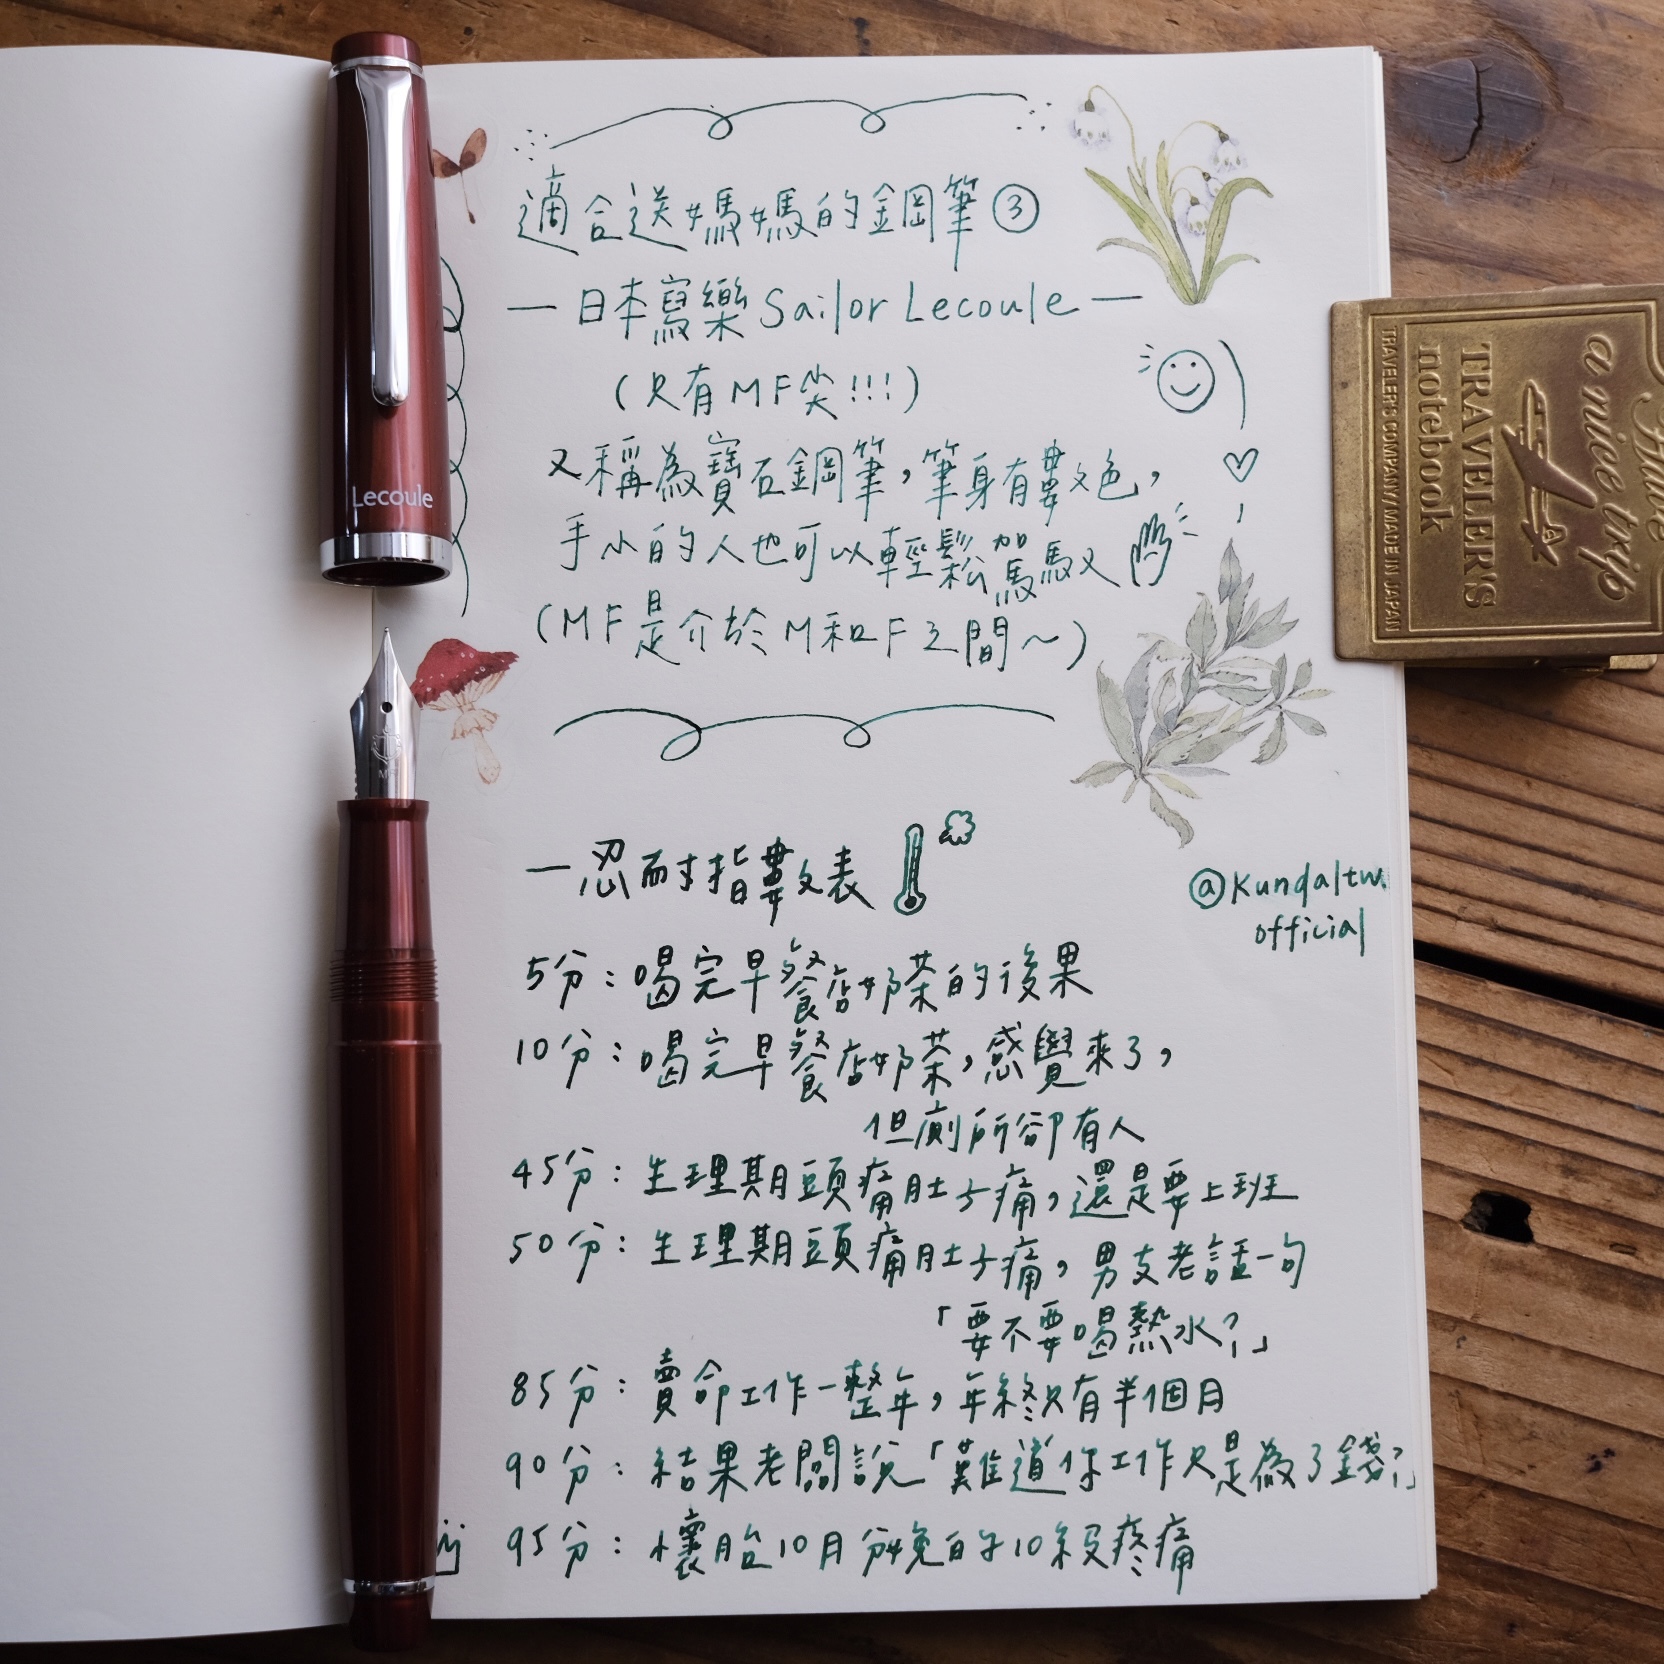 適合送媽媽的鋼筆③
— 日本寫樂 Sailor Lecoule —
(只有MF尖!!!)
又稱為寶石鋼筆，筆身有數色，
手小的人也可以輕鬆駕馭
(MF是介於M和F之間～)
Lecoule
—忍耐指數表
@Kundaltw.
official
5分：喝完早餐店奶茶的後果
10分：喝完早餐店奶茶，感覺來了，
但廁所卻有人
45分：生理期頭痛肚子痛，還是要上班
50分：生理期頭痛肚子痛，男友老話一句
「要不要喝熱水？」
85分：賣命工作一整年，年終只有半個月
90分：結果老闆說「難道你工作只是為了錢？」
95分：懷胎10月分娩的10級疼痛
a nice trip
TRAVELER'S
notebook
TRAVELER'S COMPANY/MADE IN JAPAN